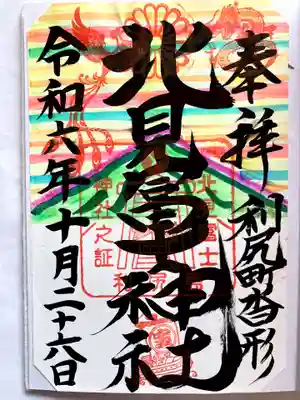 奉拝
利尻町沓形
北見富士神社
令和六年十月二十六日
北見富士
神社之証